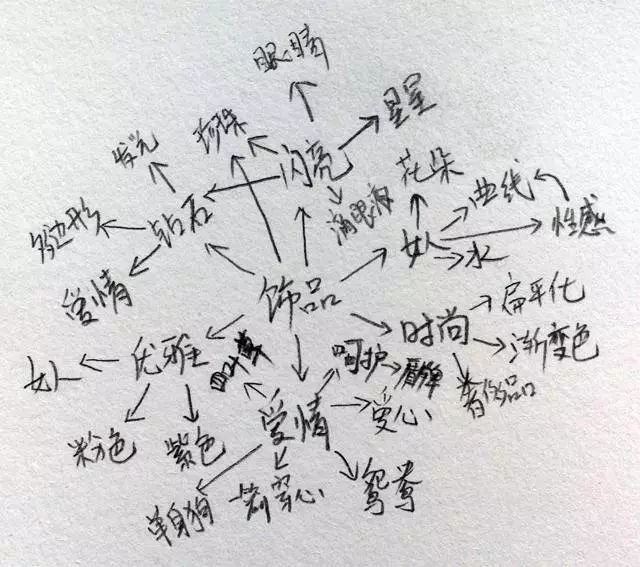 眼睛
星星
发光
珍珠
闪亮
花朵
曲线
多边形
钻石
滴眼液
女人
性感
水
爱情
饰品
扁平化
时尚
女人
优雅
四叶草
呵护
渐变色
爱心
奢侈品
粉色
紫色
爱情
单身狗
箭穿心
鸳鸯